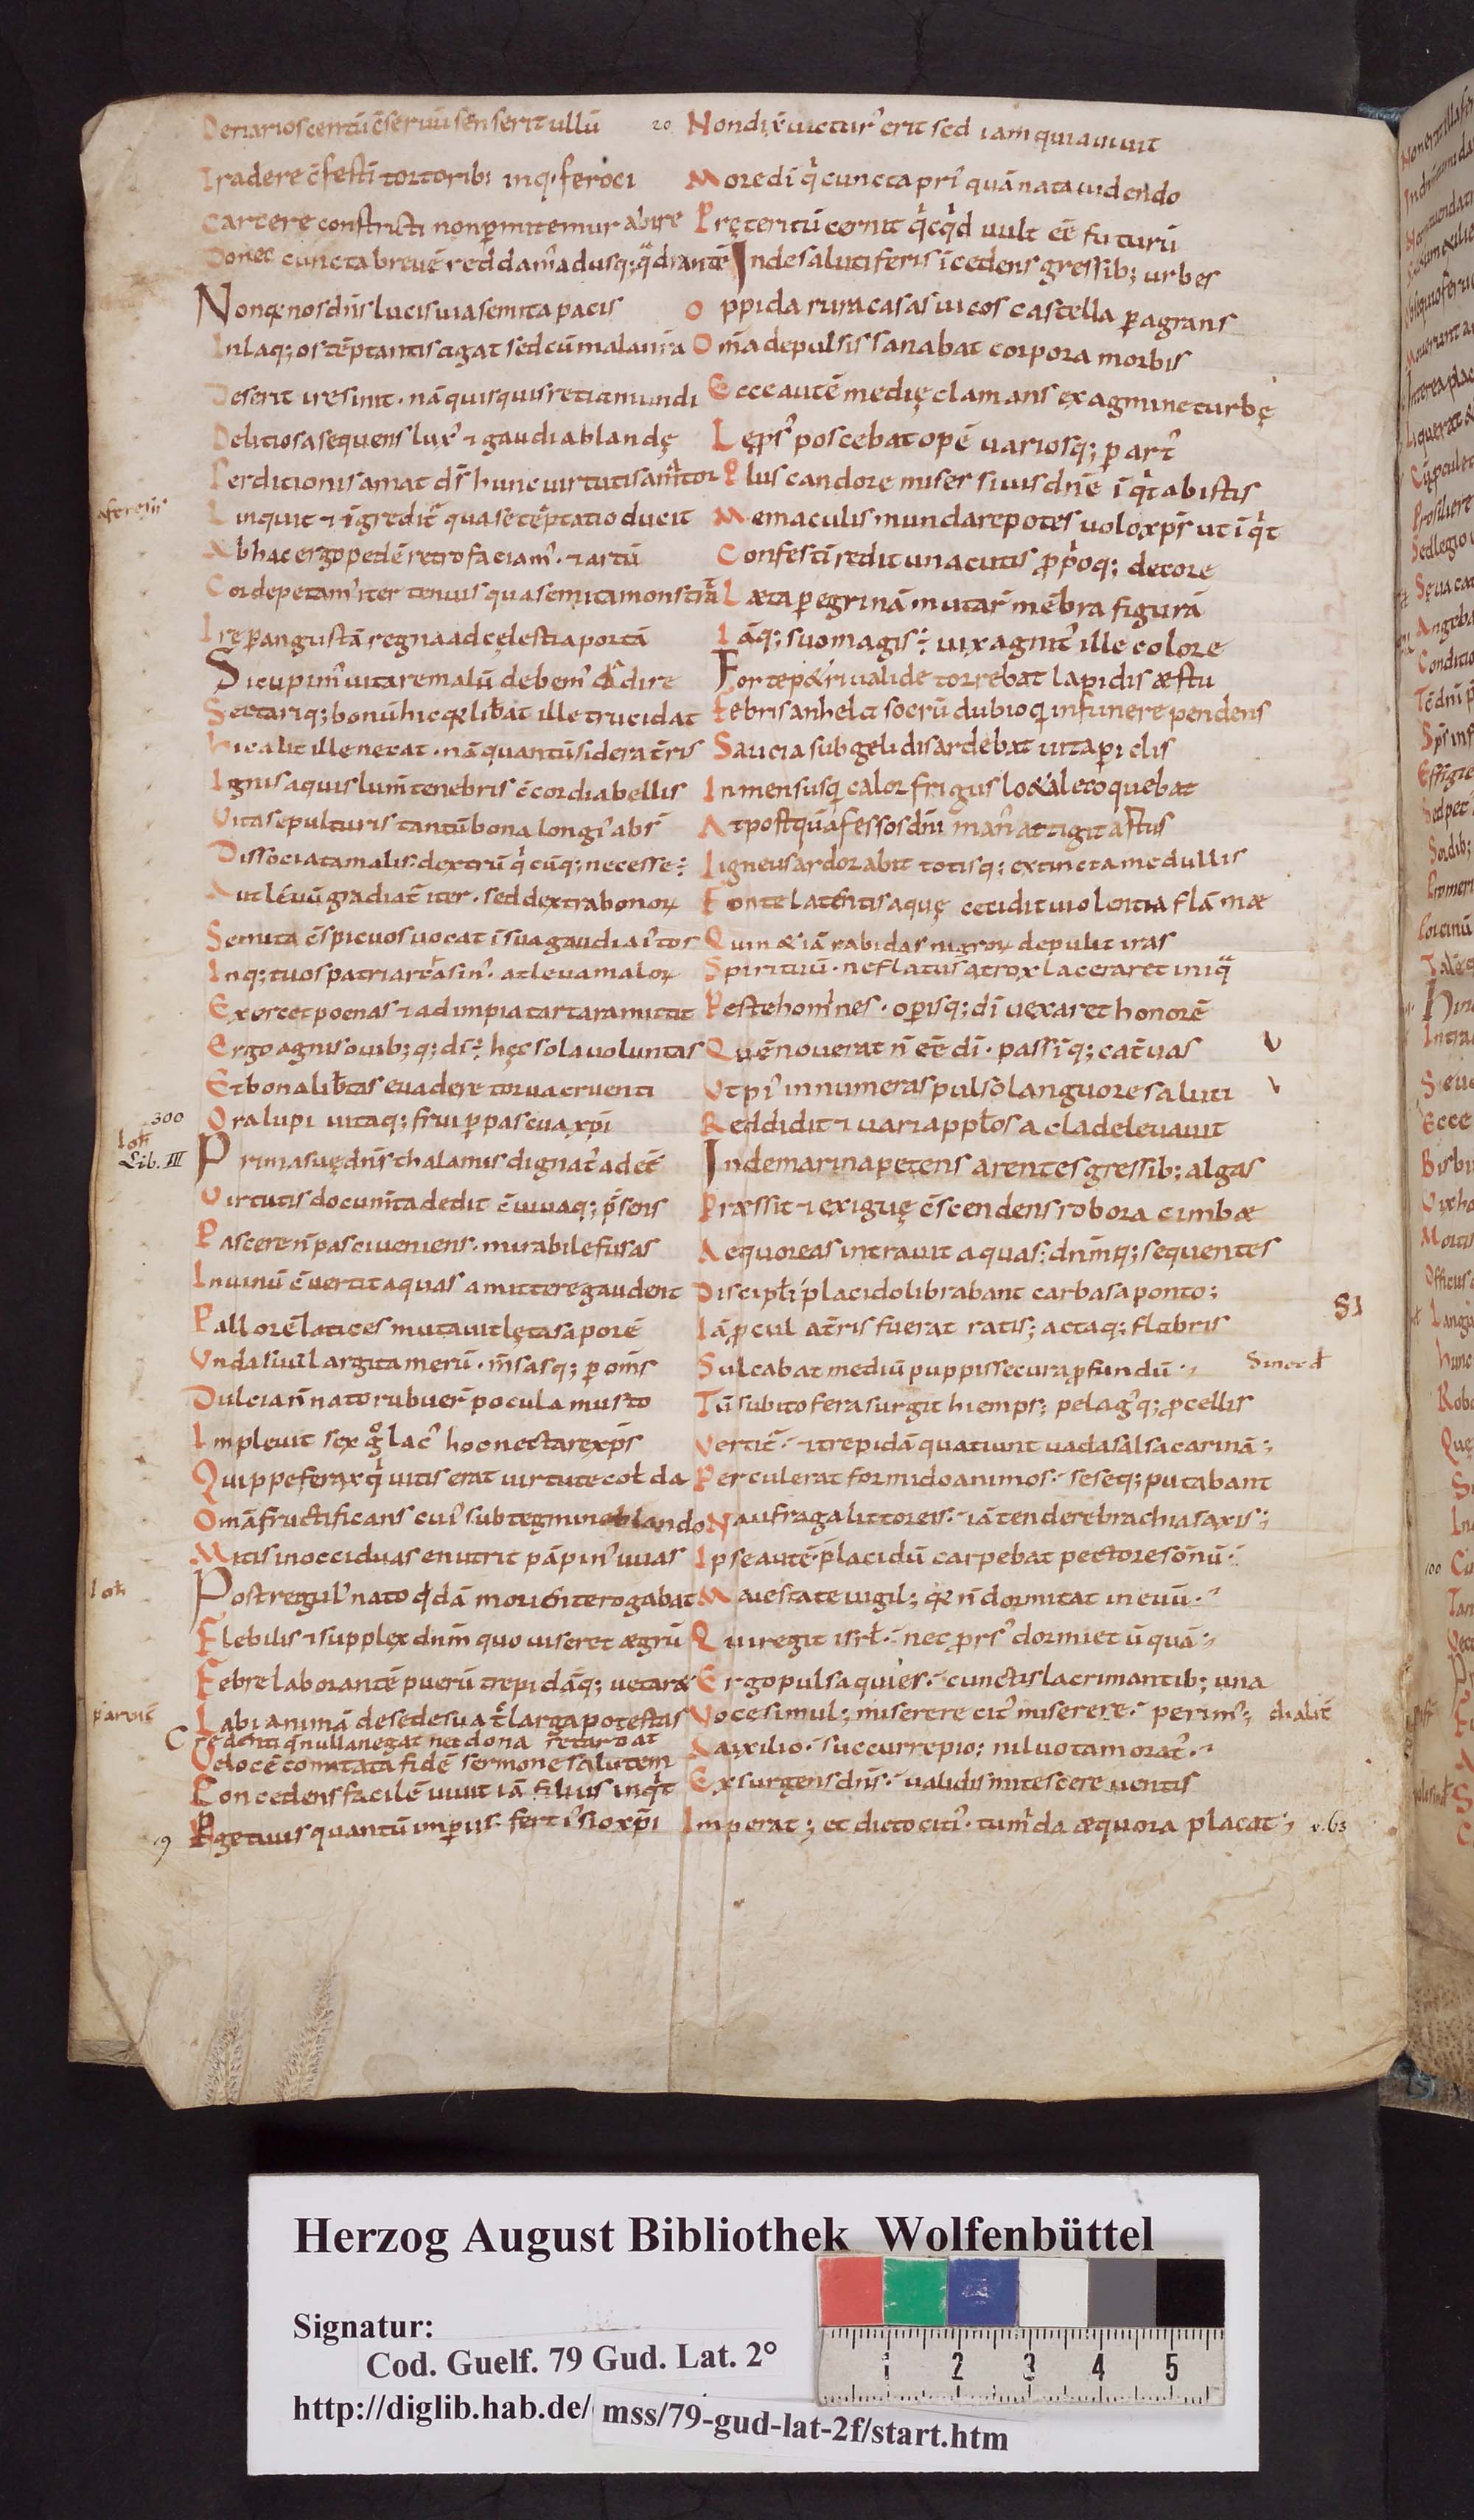 Denarios centū c̄seruū sēn serit ullū
Tradere c̄festī tortorib; inq; feroci
Carcere constricti non ꝑmittemur abire
Donec cuncta breuē reddam᾽ adusq; q̈drantē
Nonq̨ nos dn̄s lucis uia semita pacis
In laq;os tēptantis agat sed cū mala nr̄a
Deserit ire sinit · nā quisquis retia mundi
Delitiosa sequens lux᾽ ⁊ gaudia blandę
Perditionis amat ds̄ hunc uirtutis amator
Linquit ⁊ īgredit᾽ qua se tēptatio ducit
Ab hac ergo pedē retro faciam᾽ · ⁊ artū
Corde petam᾽ iter tenuis qua semita monstrat
Ire ꝑ angustā regna ad cęlestia portā
Si cupim᾽ uitare malū debem᾽ & dire
Sectariq; bonū hic q̨ lib̄at ille trucidat
hic alit ille necat · nā quantū sidera t̄ris
Ignis aquis lum̄ tenebris c̄cordia bellis
Vita sepulturis tantū bona long᾽ abs̄
Dissociata malis: dextrū q̓cūq; necesse ÷
Aut lęuū gradiat̄ iter · sed dextra bonoꝝ
Semita c̄spicuos uocat ī sua gaudia i᾽tos
Inq; tuos patriarcha sin᾽ · at leua maloꝝ
Exercet poenas ⁊ ad impia tartara mittit
Ergo agnis ouib;q; di ÷ hęc sola uoluntas
Et bona lib̄tas euadere torua cruenti
300 Ora lupi uitaq; frui ꝑ pascua xp̄i
Lib. III Prima suę dn̄s thalamis dignat᾽ adeē
Virtutis docum̄ta dedit c̄uiuaq; p̄sens
Pascere n̄ pasci ueniens · mirabile fusas
In uinū c̄uertit aquas amittere gaudent
Pallorē latices mutauit lęta saporē
Vnda suū largita merū · m̄sasq; ꝑ om̄s
Dulcia n̄ nato rubuer̄ pocula musto
Impleuit sex g̊ lac᾽ hoc nectare xp̄s
Quippe ferax q̓ uitis erat uirtute col̄da
Omā fructificans cui᾽ sub tegmine blando
Mitis inocciduas enutrit pāpin᾽ uuas
Post regul᾽ nato q̓dā morient rogabat
Flebilis ⁊ supplex dn̄m quo uiseret ægrū
Febre laborantē puerū trepidāq; uetaræ
Labi animā de sede sua t̄ larga potestas
Credenti q̨ nulla negat nec dona retardat
Velocē comitata fidē sermone salutem
Concedens facilē uiuit iā filius inq̓t
Age tuus quantū imꝑus · fert i᾽sio xp̄i
20 Nondū̄ uictur᾽ erit sed iam quia uiuit
More di q̓ cuncta pri᾽ quā nata uidendo
Pręteritū cernit q̓cq̓d uult eē futurū
Inde salutiferis īcedens gressib; urbes
Oppida rura casas uicos castella ꝑagrans
Om̄ia depulsis sanabat corpora morbis
Ecce autē medię clamans ex agmine turbę
Lepr᾽ poscebat opē uariosq; ꝑ art᾽
Plus candore miser si uis dn̄e īq̓t ab istis
Me maculis mundare potes uolo xp̄s ut īq̓t
Confestī redit una cutis ꝓpoq; decore
Læta ꝑegrinā mutar᾽ mēbra figurā
Iāq; suo magis ÷ uix agnit᾽ ille colore
Forte p&ri ualide torrebat lapidis æstu
Febris anhela socrū dubioq; in funere pendens
Saucia sub gelidis ardebat uita ꝑiclis
Inmensusq; calor frigus loetale coquebat
At postquā fessos dn̄i man᾽ attigit artus
Igneus ardor abit totisq; extincta medullis
Fonte latentis aquę cecidit uiolentia flāmæ
Quin & iā rabidas nigroꝝ depulit iras
Spirituū · ne flatus atrox laceraret iniq̈
Peste homines · oꝑisq; di uexaret honorē
Quē nouerat n̄ eē di · passīq; cat̄uas
Vt pi᾽ innumeras pulso languore saluti
Reddidit ⁊ uaria ppl̄os a clade leuauit
Inde marina petens arentes gressib; algas
Præssit ⁊ exiguę c̄scendens robora cimbæ
Aequoreas intrauit aquas: dnm̄q; sequentes
Discipl̄i placido librabant carbasa ponto;
Iā ꝓcul at̄ris fuerat ratis; actaq; flabris
Sulcabat mediū puppis secura ꝓfundū ·,
Tū subito fera surgit hiemps; pelag᾽q; ꝓcellis
Vertit᾽ · ⁊ trepidā quatiunt uada salsa carinā ·;
Perculerat formido animos · seseq; putabant
Naufraga littoreis · iā tendere brachia saxis ·;
Ipse autē placidū carpebat pectore somnū ·
Maiestate uigil; q̨ n̄ dormitat in euū ·
Qui regit isrl̄ · nec ꝓrs᾽ dormiet ūquā ·,
Ergo pulsa quies · cunctis lacrimantib; una
Voce simul; miserere cit᾽ miserere · perim᾽;
Auxilio · succurre pio; nil uota morat᾽ ·
Exsurgens dn̄s · ualidis mitescere uentis
Imperat; et dicto citi᾽ · tumida æquora placat ·, v. 63
Herzog August Bibliothek Wolfenbüttel
Signatur:
Cod. Guelf. 79 Gud. Lat. 2°
http://diglib.hab.de/ mss/79-gud-lat-2f/start.htm
1 2 3 4 5